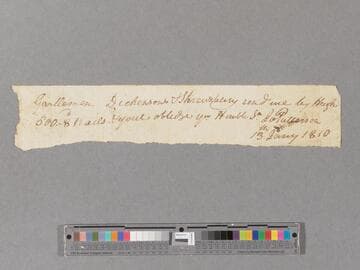 Gentlemen Dickerson & Shrewsbury send me by Hugh
500 8d Nails & youl oblidge yr Humble St Jo Patterson
13 Jany 1810